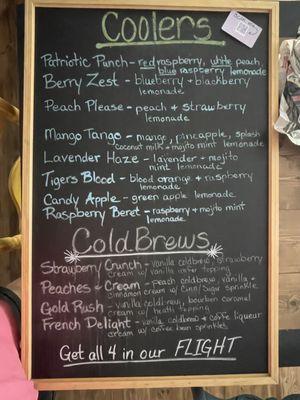 Coolers
Patriotic Punch - red raspberry, white peach,
blue raspberry lemonade
Berry Zest - blueberry + blackberry
lemonade
Peach Please - peach + strawberry
lemonade
Mango Tango - mango, pineapple, splash
coconut milk + mojito mint lemonade
Lavender Haze - lavender + mojito
mint lemonade
Tigers Blood - blood orange + raspberry
lemonade
Candy Apple - green apple lemonade
Raspberry Beret - raspberry + mojito mint
lemonade
Cold Brews
Strawberry Crunch - vanilla coldbrew, strawberry
cream w/ vanilla wafer topping
Peaches + Cream - peach coldbrew, vanilla +
cinnamon cream w/ Cinn/Sugar sprinkle
Gold Rush - vanilla coldbrew, bourbon caramel
cream w/ heath topping
French Delight - vanilla coldbrew + coffee liqueur
cream w/ coffee bean sprinkles
Get all 4 in our FLIGHT